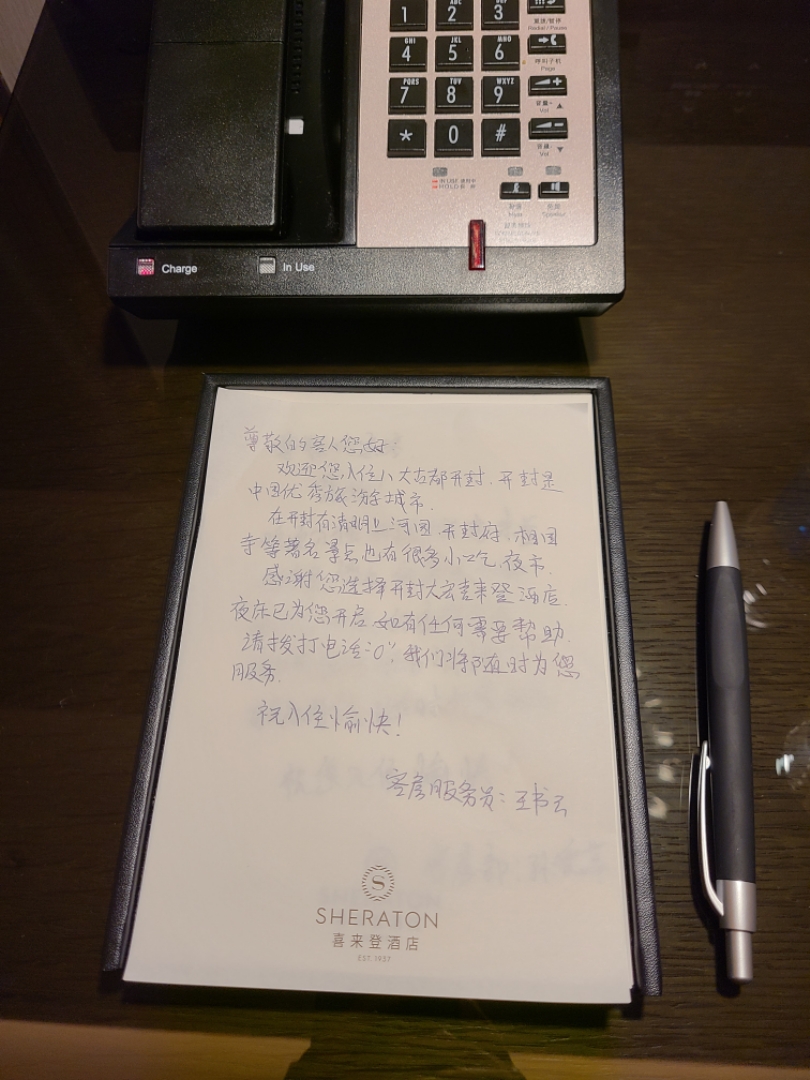 1
2
3
GHI
JKL
MNO
4
5
6
PQRS
TUV
WXYZ
7
8
9
*
0
#
重拨/暂停
Redial / Pause
呼叫子机
Page
音量+
Vol
音量-
Vol
Charge
In Use
尊敬的客人您好:
欢迎您入住八大古都开封.开封是
中国优秀旅游城市.
在开封有清明上河园.开封府.相国
寺等著名景点也有很多小吃.夜市.
感谢您选择开封大宏喜来登酒店.
夜床已为您开启.如有任何需要帮助.
请拨打电话:"0",我们将随时为您
服务.
祝入住愉快!
客房服务员:王书云
S
SHERATON
喜来登酒店
EST. 1937